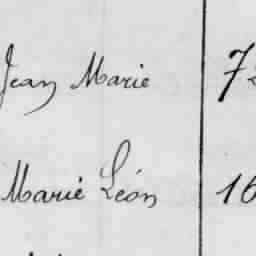 Jean Marie 7
Marie Léon 16